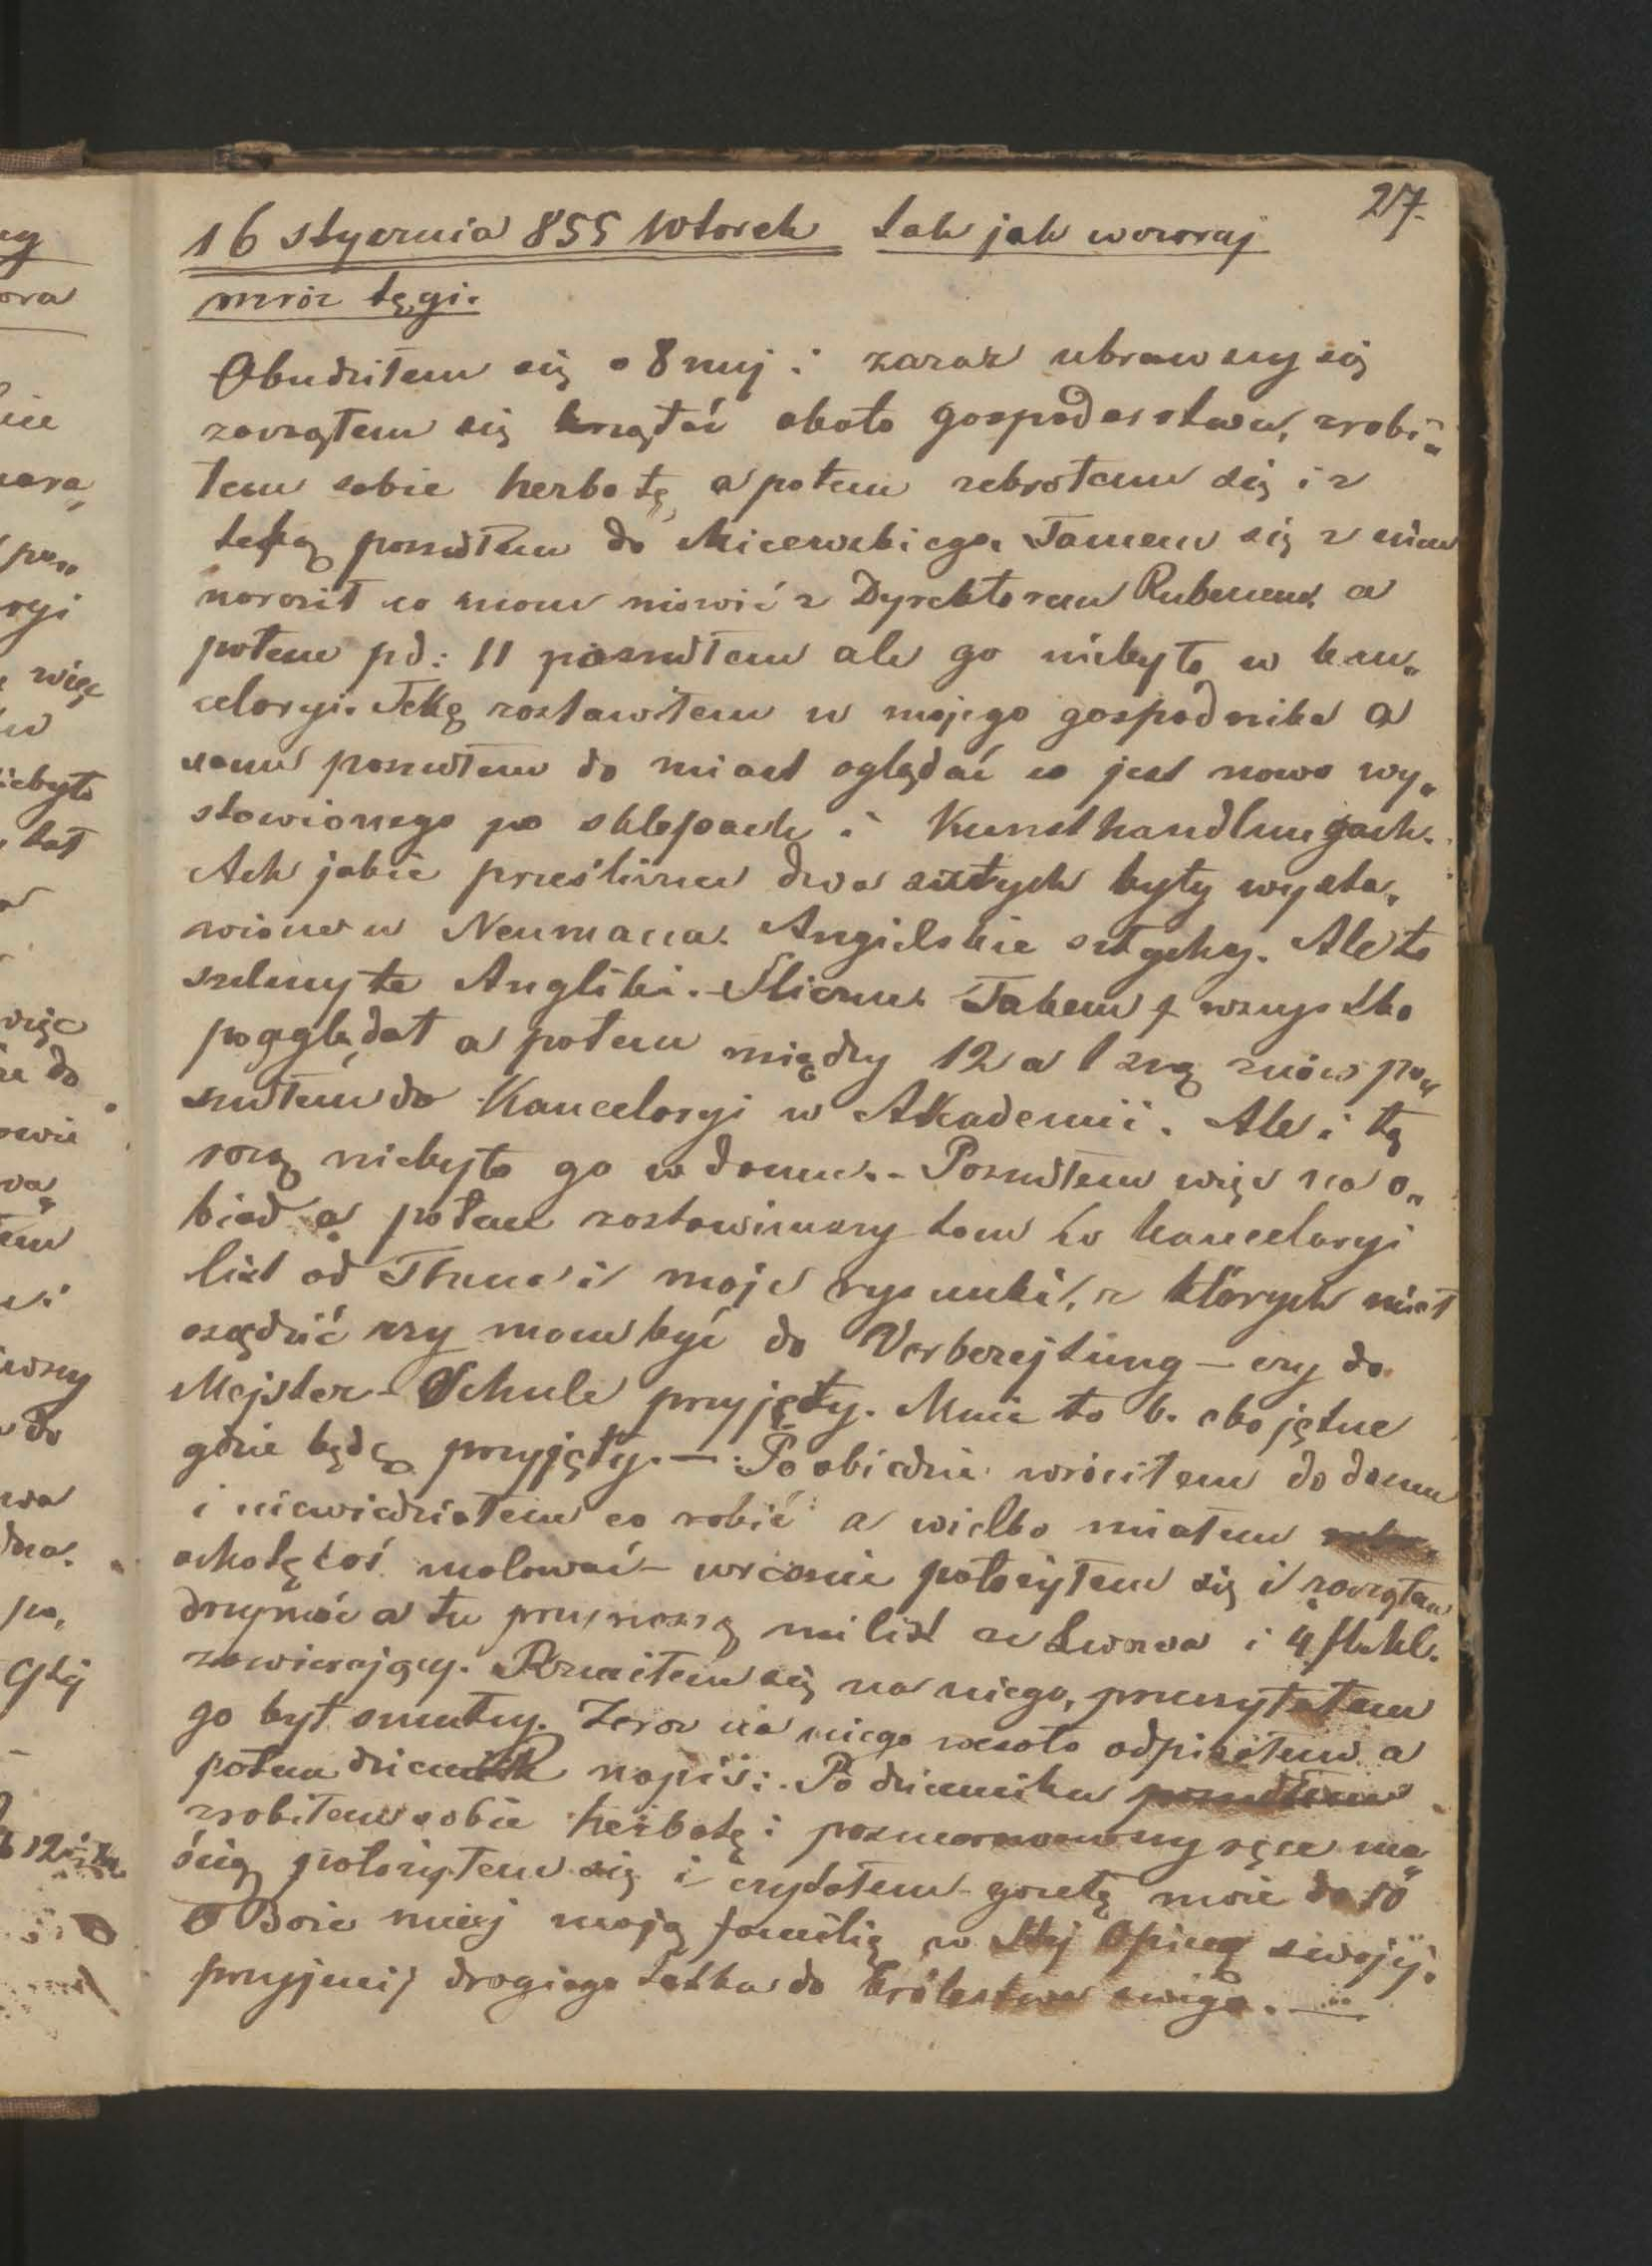 27.
16 stycznia 855 Wtorek tak jak wczoraj
mróz tęgi.
Obudziłem się o 8mej i zaraz ubrawszy się
zacząłem się krzątać około gospodarstwa, zrobi„
łem sobie herbatę, a potem zebrałem się i z
teką poszedłem do Micewskiego. Tamem się z nim
naradził co mam mówić z Dyrektorem Rubenem, a
potem pd: 11 poszedłem ale go niebyło w kan„
celaryi. Tekę zostawiłem u mojego gospodnika a
sam poszedłem do miast oglądać co jest nowo wy„
stawionego po sklepach i Kunsthandlungach.
Ach jakie prześliczne dwa sztych były wysta„
wione u Neumanna. Angielskie sztychy. Ale to
szelmy te Angliki. Śliczne. Takem wszystko
pooglądał a potem między 12 a 1szą znów po„
szedłem do Kancelaryi w Akademii. Ale i tą
razą niebyło go w domu. - Poszedłem więc na o„
biad a potem zostawiwszy tam w kancelaryi
list od Thuna i moje rysunki, z których miał
osądzić czy mam być do Verberejtung — czy do
Mejster-Schule przyjęty. Mnie to b. obojętne
gdzie będę przyjęty. — Po obiedzie wróciłem do domu
i niewiedziałem co robić a wielko miałem
ochotę coś malować - wreśnie położyłem się i zacząłem
drzymać a tu przynoszą mi list ze Lwowa i 4
zawierający. Rzuciłem się na niego, przeczytałem
go był smutny. Zaraz na niego wesoło odpisałem a
potem dziennik napis: Po dzienniku poszedłem
zrobiłem sobie herbatę i posmarowawszy ręce ma„
ścią położyłem się i czytałem gazetę może do 10
O Boże miej moją familię w Stej Opiece swojéj.
przyjmij drogiego tatka do królestwa swego. —